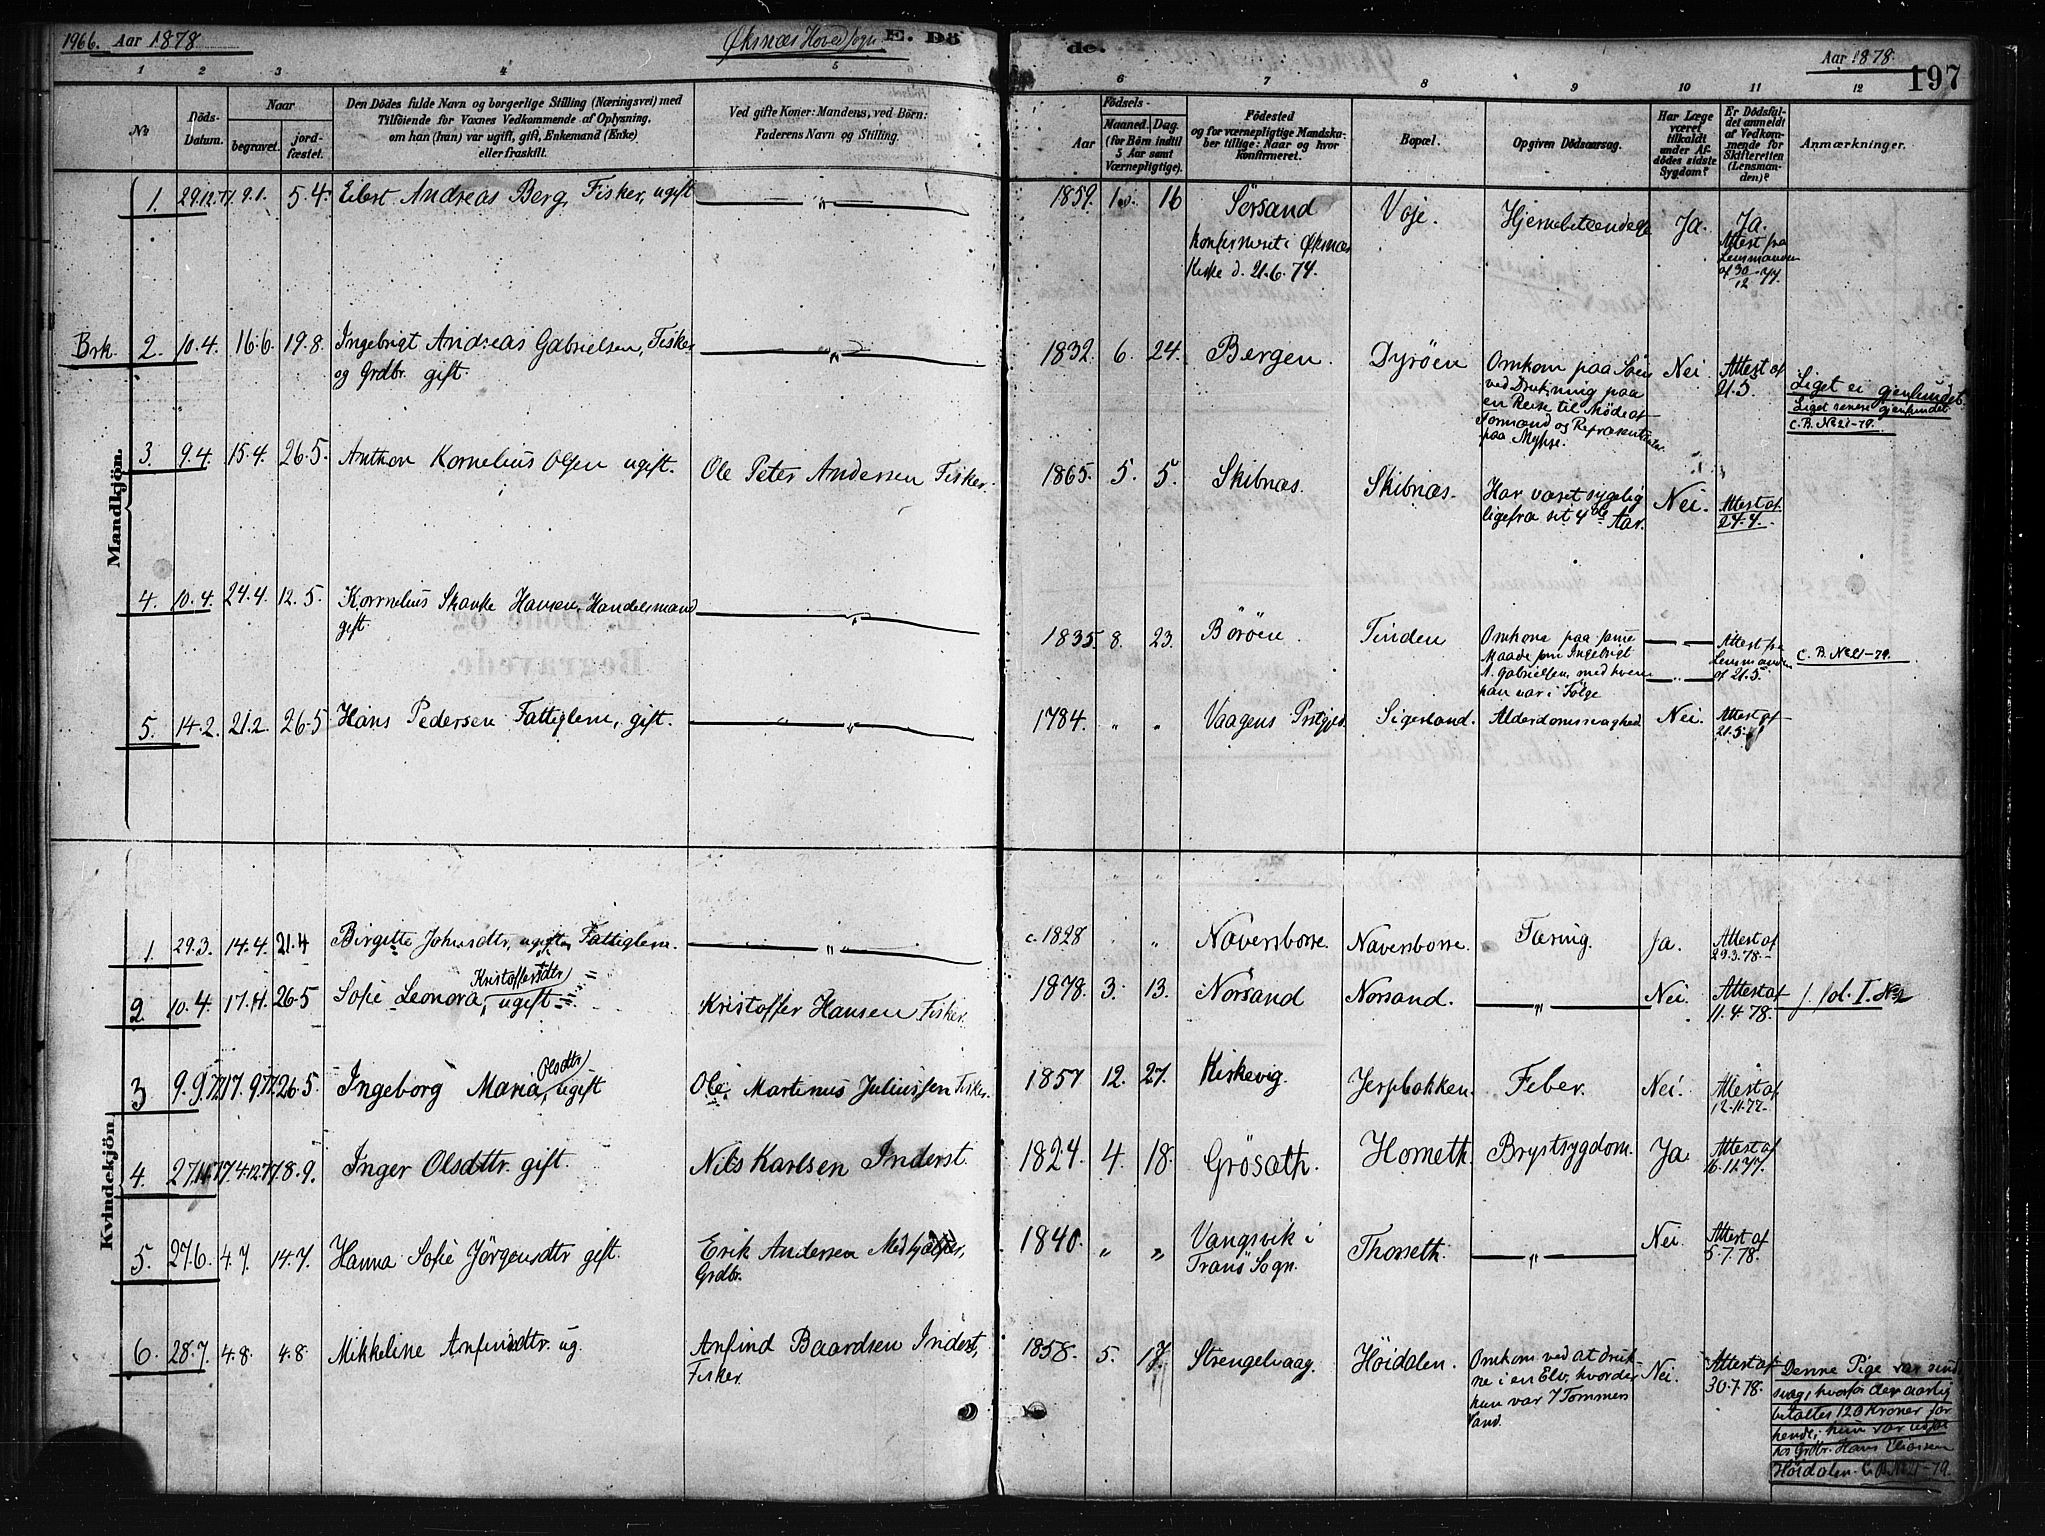 1966. Aar 1878
Øksnæs Hovedsogn
E. Dö
de.
Aar 1878.
197
1 2 3 4 5 6 7 8 9 10 11 12
No
Döds-Datum.
Naar
begravet.
jord-fæstet.
Den Dödes fulde Navn og borgerlige Stilling (Næringsvei) med
Tilföiende for Voxnes Vedkommende af Oplysning,
om han (hun) var ugift, gift, Enkemand (Enke)
eller fraskilt.
Ved gifte Koner: Mandens, ved Börn:
Faderens Navn og Stilling.
Födsels-
Aar
Maaned. Dag.
(for Börn indtil
5 Aar samt
Værnepligtige).
Födested
og for værnepligtige Mandska-
ber tillige: Naar og hvor
konfirmeret.
Bopæl.
Opgiven Dödsaarsag.
Har Læge
været
tilkaldt
under Af-
dödes sidste
Sygdom?
Er Dödsfal-
det anmeldt
af Vedkom-
mende for
Skifteretten
(Lensman-
den)?
Anmærkninger.
Mandkjön.
1. 29.12.77. 9.1. 5.4. Eibert Andreas Berg, Fisker, ugift — „ — 1859. 10. 16 Sörsand Voje. Hjernebetændelse Ja. Ja.
konfirmeret i Øksnæs
Kirke d. 21.6.74.
Attest fra
Lensmanden
af 30/12 77
Brk. 2. 10.4. 16.6. 19.8. Ingebrigt Andreas Gabrielsen, Fisker — „ — 1832. 6. 24. Bergen. Dyröen Omkom paa Söen Nei. Attest af
og Grdbr. gift.
ved Drukning paa
en Reise til Möde af
Formænd og Repræsentanter
paa Myhre.
21.5
Liget ei gjenfundet.
Liget senere gjenfundet
C.B. No 21-79.
3. 9.4. 15.4. 26.5. Anthon Kornelius Olsen ugift. Ole Peter Andersen Fisker. 1865. 5. 5. Skibnæs. Skibnæs. Har været sygelig Nei. Attest af
ligefra sit 4de Aar. 24.4.
4. 10.4. 24.4. 12.5. Kornelius Skanke Hansen, Handelsmand — „ — 1835. 8. 23. Böröen. Tinden Omkom paa samme — „ — Attest fra
gift.
Maade som Ingebrigt
A. Gabrielsen, med hvem
han var i Fölge
Lensmanden
af 21.5
C.B. No 21-79.
5. 14.2. 21.2. 26.5 Hans Pedersen Fattiglem, gift. — „ — 1784. „ „ Vaagens Prstgjd. Sigerland. Alderdomssvaghed Nei. Attest af
21.5.
Kvindekjön.
1. 29.3. 14.4. 21.4 Birgitte Johnsdtr. ugift, Fattiglem. — „ — c. 1828 „ „ Naversborse. Naversborse. Tæring. Ja. Attest af
29.3.78.
2. 10.4. 17.4. 26.5 Sofie Leonora Kristoffersdtr, ugift Kristoffer Hansen Fisker. 1878. 3. 13. Norsand Norsand. — „ — Nei. Attest af
11.4.78.
f. fol. I. No 2
3 9.9.77 17.9.77 26.5. Ingeborg Maria Olsdtr, ugift Ole Martinus Juliussen Fisker. 1857 12. 27. Kirkevig. Jerpbakken. Feber. Nei. Attest af
12.11.77.
4. 27.11.77 4.12.77 8.9. Inger Olsdttr. gift. Nils Karlsen Inderst. 1824. 4. 18. Grösæth. Hometh. Brystsygdom. Ja Attest af
6.12.77.
5. 27.6. 4.7. 14.7. Hanna Sofie Jörgensdtr gift. Erik Andersen Medhjælper, 1840. „ „ Vangsvik i Thorseth. — „ — Nei. Attest af
Grdbr. Tranö Sogn. 5.7.78.
6. 28.7. 4.8. 4.8. Mikkeline Anfindsdttr. ug. Anfind Baardsen Inderst, 1858. 5. 17. Strengelvaag. Höidalen. Omkom ved at druk- Nei. Attest af
Fisker.
ne i en Elv, hvor der
kun var 7 Tommers
Vand.
30.7.78.
Denne Pige var sind-
svag, hvorfor der aarlig
betaltes 120 Kroner for
hende; hun var udsat
hos Grdbr. Hans Eliassen
Höidalen. C.B. No 21-79.